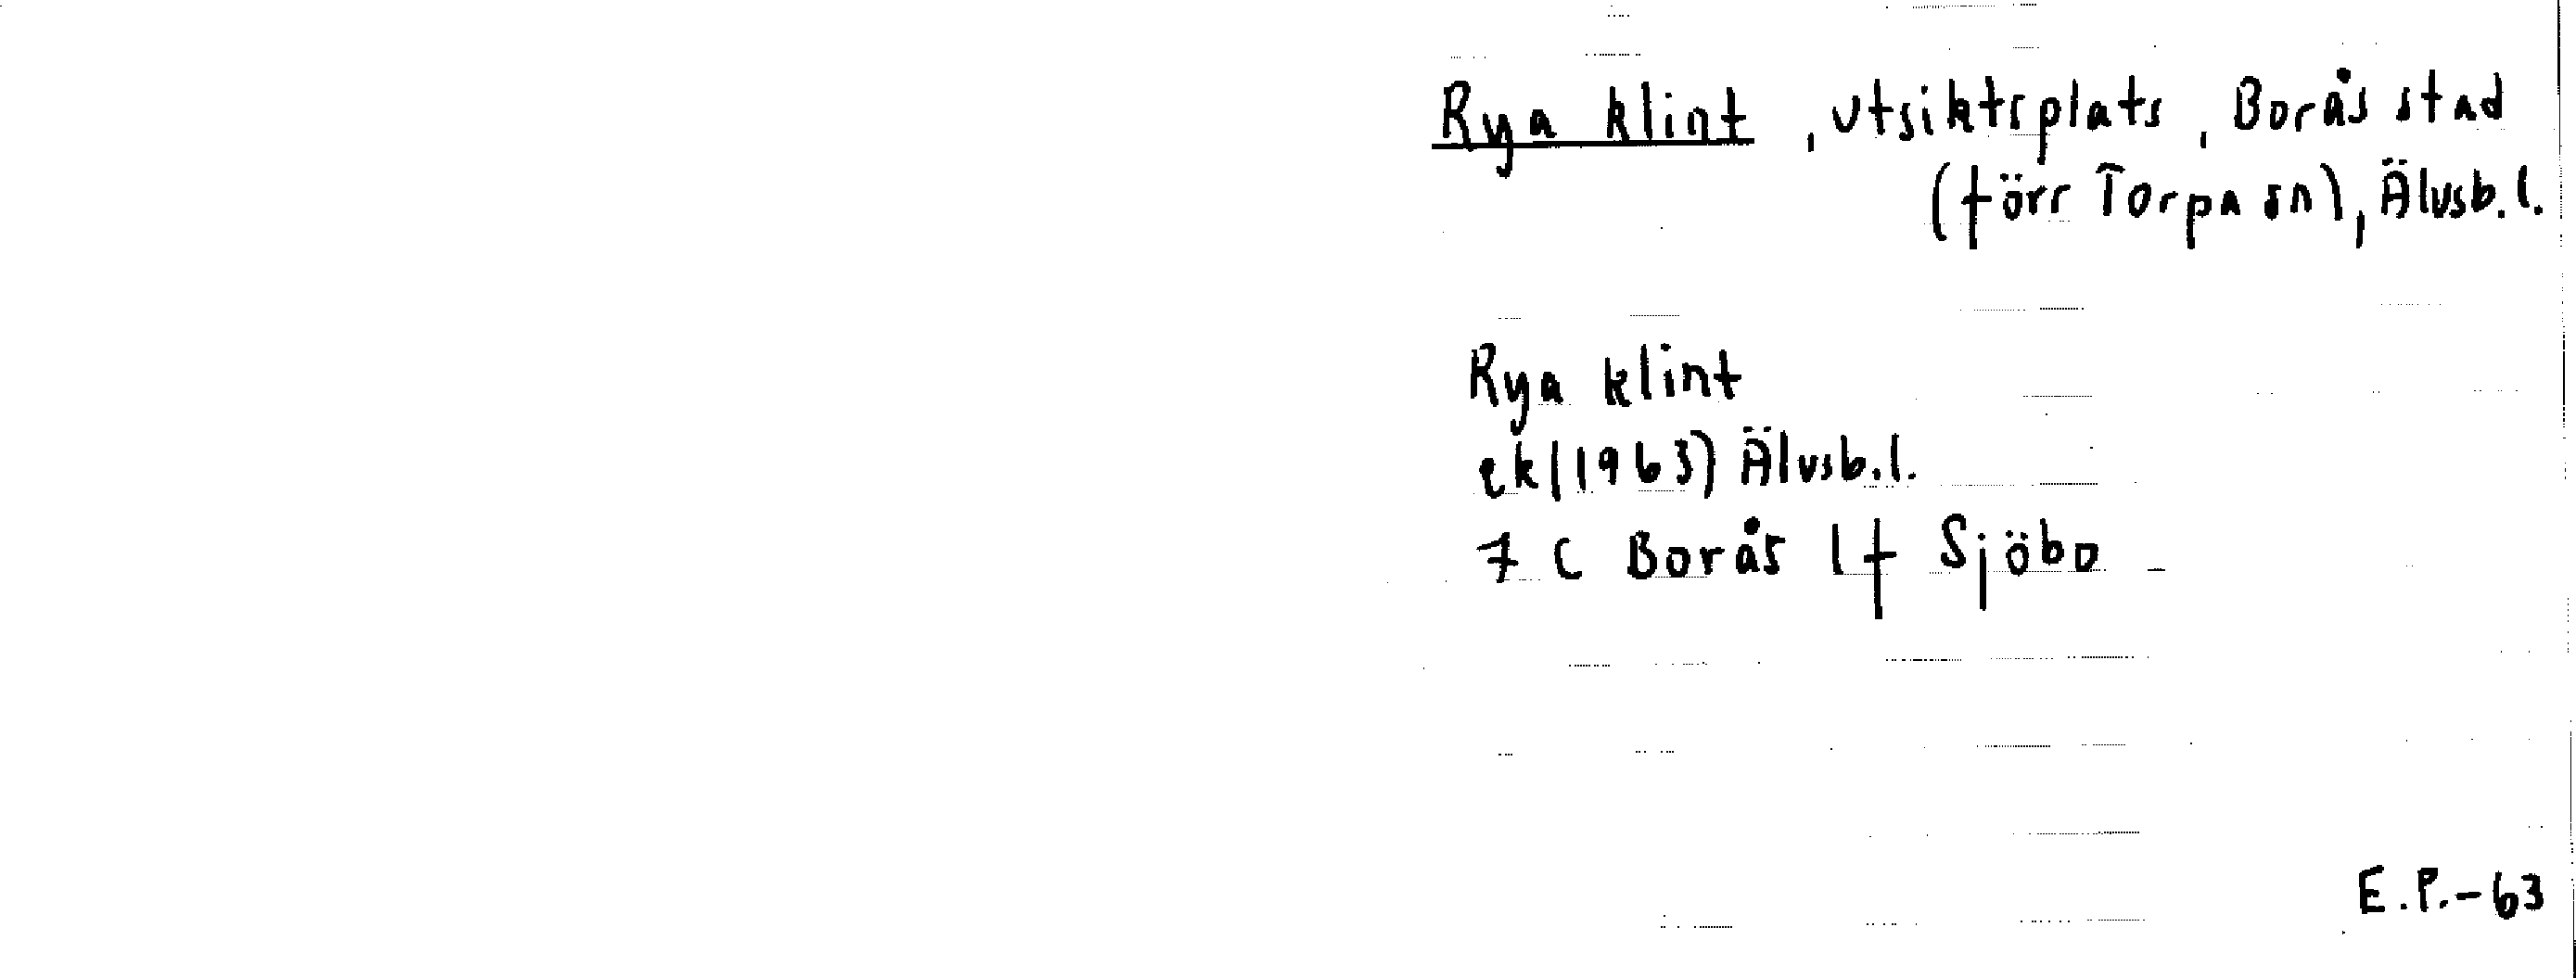 Rya klint, utsiktsplats, Borås stad
(förr Torpa sn), Älvsb.l.
Rya klint
ek (1963) Älvsb.l.
7 C Borås 1f Sjöbo
E.P.-63